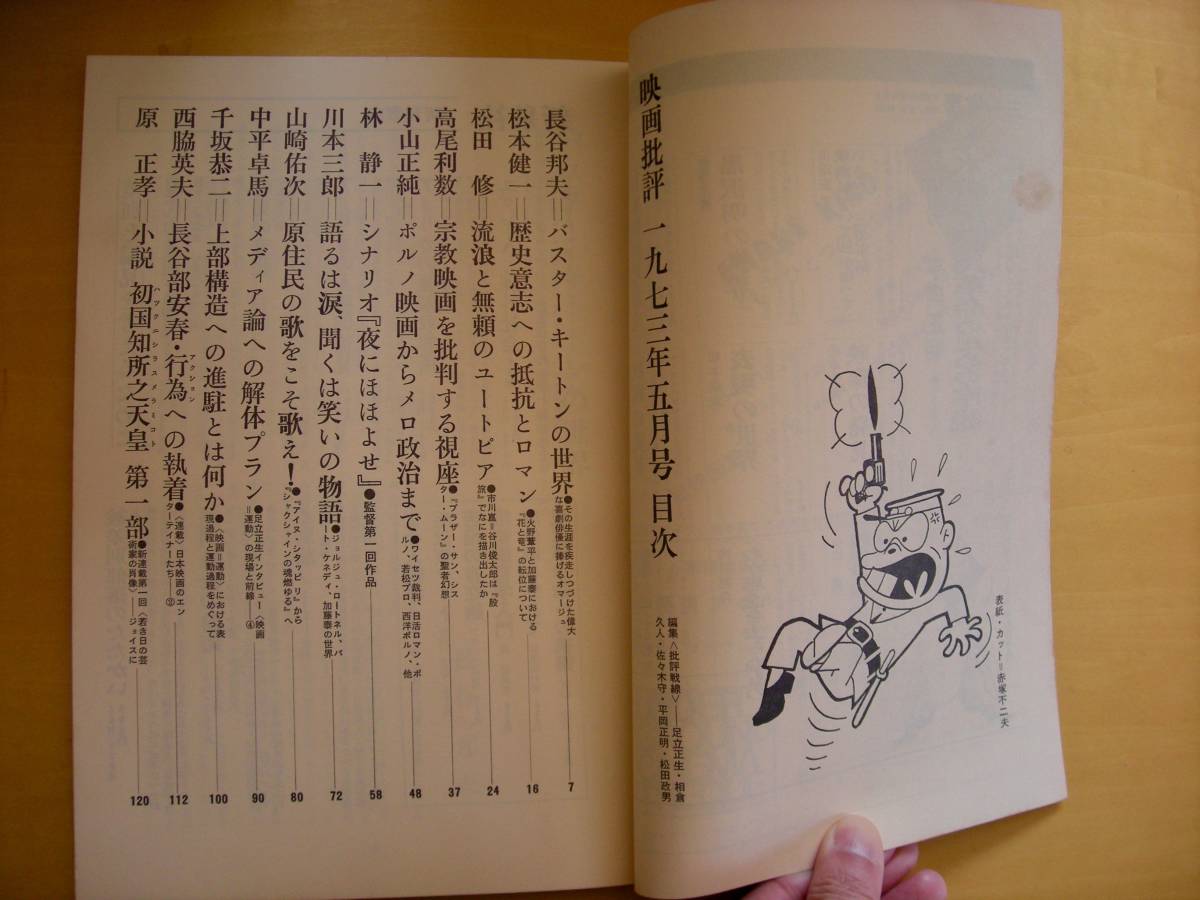 映画批評 一九七三年五月号 目次
表紙・カット=赤塚不二夫
編集〈批評戦線〉──足立正生・相倉
久人・佐々木守・平岡正明・松田政男
長谷邦夫=バスター・キートンの世界●その生涯を疾走しつづけた偉大
な喜劇俳優に捧げるオマージュ 7
松本健一=歴史意志への抵抗とロマン●火野葦平と加藤泰における
『花と竜』の転位について 16
松田 修=流浪と無頼のユートピア●市川崑=谷川俊太郎は『股
旅』でなにを描き出したか 24
高尾利数=宗教映画を批判する視座●『ブラザー・サン、シス
ター・ムーン』の聖者幻想 37
小山正純=ポルノ映画からメロ政治まで●ワイセツ裁判、日活ロマン・ポ
ルノ、若松プロ、西洋ポルノ、他 48
林 静一=シナリオ『夜にほほよせ』●監督第一回作品 58
川本三郎=語るは涙、聞くは笑いの物語●ジョルジュ・ロートネル、バ
ート・ケネディ、加藤泰の世界 72
山崎佑次=原住民の歌をこそ歌え!●『アイヌ・シタッピリ』から
『シャクシャインの魂燃ゆる』へ 80
中平卓馬=メディア論への解体プラン●足立正生インタビュー〈映画
=運動〉の現場と前線④ 90
千坂恭二=上部構造への進駐とは何か●〈映画=運動〉における表
現過程と運動過程をめぐって 100
西脇英夫=長谷部安春・行為アクションへの執着●〈連載〉日本映画のエン
ターテイナーたち─② 112
原 正孝=小説 初国知所之天皇ハツクニシラスメラミコト 第一部●新連載第一回〈若き日の芸
術家の肖像〉──ジョイスに 120